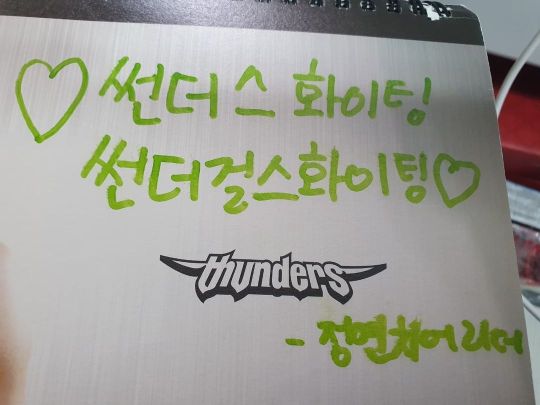 ♡ 썬더스 화이팅
썬더걸스화이팅♡
thunders
- 정연치어리더